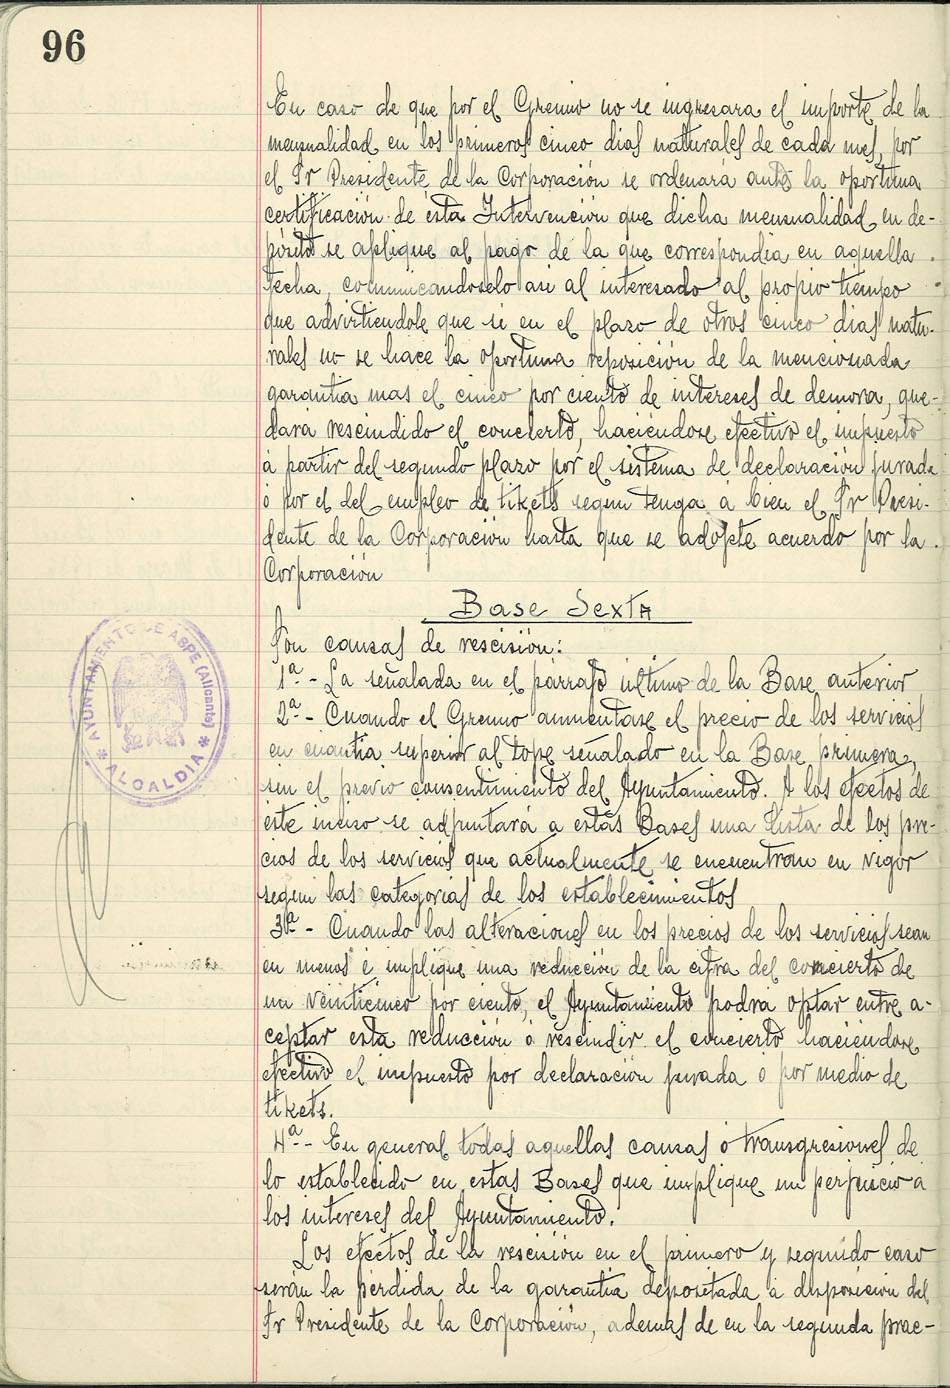 96
En caso de que por el Gremio no se ingresara el importe de la
mensualidad en los primeros cinco dias naturales de cada mes, por
el Sr Presidente de la Corporación se ordenará ante la oportuna
certificación de ésta Intervención que dicha mensualidad en de-
pósito se aplique al pago de la que correspondia en aquella
fecha, comunicandoselo asi al interesado al propio tiempo
que advirtiendole que si en el plazo de otros cinco dias natu-
rales no se hace la oportuna reposición de la mencionada
garantia mas el cinco por ciento de intereses de demora, que-
dará rescindido el concierto, haciéndose efectivo el impuesto
á partir del segundo plazo por el sistema de declaración jurada
ó por el del empleo de tikets segun tenga á bien el Sr Presi-
dente de la Corporación hasta que se adopte acuerdo por la
Corporación
Base Sexta
Son causas de rescisión:
1ª - La señalada en el párrafo último de la Base anterior
2ª - Cuando el Gremio aumentase el precio de los servicios
en cuantia superior al tope señalado en la Base primera,
sin el previo consentimiento del Ayuntamiento. A los efectos de
éste inciso se adjuntará a estas Bases una lista de los pre-
cios de los servicios que actualmente se encuentran en vigor
segun las categorias de los establecimientos
3ª - Cuando las alteraciones en los precios de los servicios sean
en menos é implique una reducción de la cifra del concierto de
un veinticinco por ciento, el Ayuntamiento podrá optar entre a-
ceptar esta reducción ó rescindir el concierto haciéndose
efectivo el impuesto por declaración jurada ó por medio de
tikets.
4ª - En general todas aquellas causas ó transgresiones de
lo establecido en estas Bases que implique un perjuicio á
los intereses del Ayuntamiento.
Los efectos de la rescisión en el primero y segundo caso
serán la pérdida de la garantia depositada á disposición del
Sr Presidente de la Corporación, ademas de en la segunda prac-
AYUNTAMIENTO DE ASPE (Alicante)
* ALCALDIA *